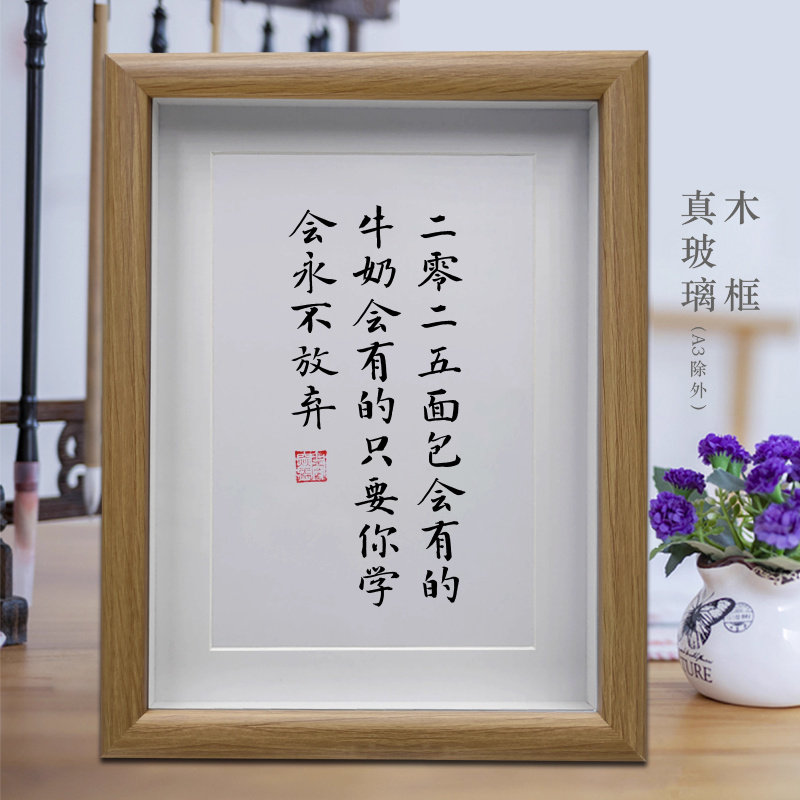 二零二五面包会有的
牛奶会有的只要你学
会永不放弃
木框
真玻璃(A3除外)